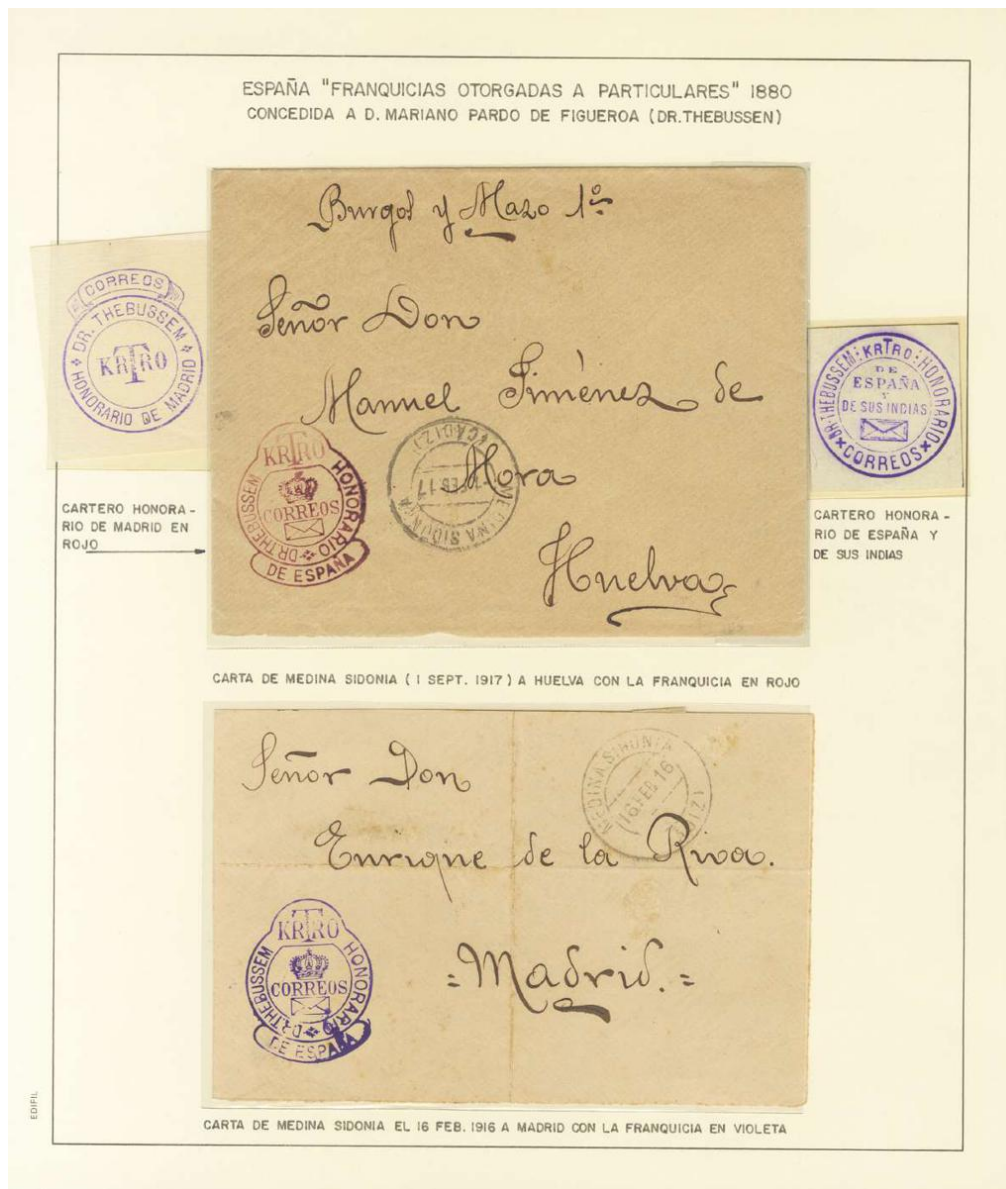 ESPAÑA "FRANQUICIAS OTORGADAS A PARTICULARES" 1880
CONCEDIDA A D. MARIANO PARDO DE FIGUEROA (DR.THEBUSSEN)
CORREOS
DR. THEBUSSEM
KRTRO
HONORARIO DE MADRID
CARTERO HONORA-
RIO DE MADRID EN
ROJO
Burgos y Mazo 1º
Señor Don
Manuel Jiménez de
Mora
Huelva
KRTRO
HONORARIO
CORREOS
DR THEBUSSEM
DE ESPAÑA
MEDINA SIDONIA
(CADIZ)
DR. THEBUSSEM: KRTRO: HONORARIO
DE
ESPAÑA
Y
DE SUS INDIAS
CORREOS
CARTERO HONORA-
RIO DE ESPAÑA Y
DE SUS INDIAS
CARTA DE MEDINA SIDONIA (1 SEPT. 1917) A HUELVA CON LA FRANQUICIA EN ROJO
Señor Don
Enrique de la Riva.
=Madrid.=
MEDINA SIDONIA
16 FEB 16
KRTRO
HONORARIO
CORREOS
DR THEBUSSEM
DE ESPAÑA
CARTA DE MEDINA SIDONIA EL 16 FEB. 1916 A MADRID CON LA FRANQUICIA EN VIOLETA
EDIFIL